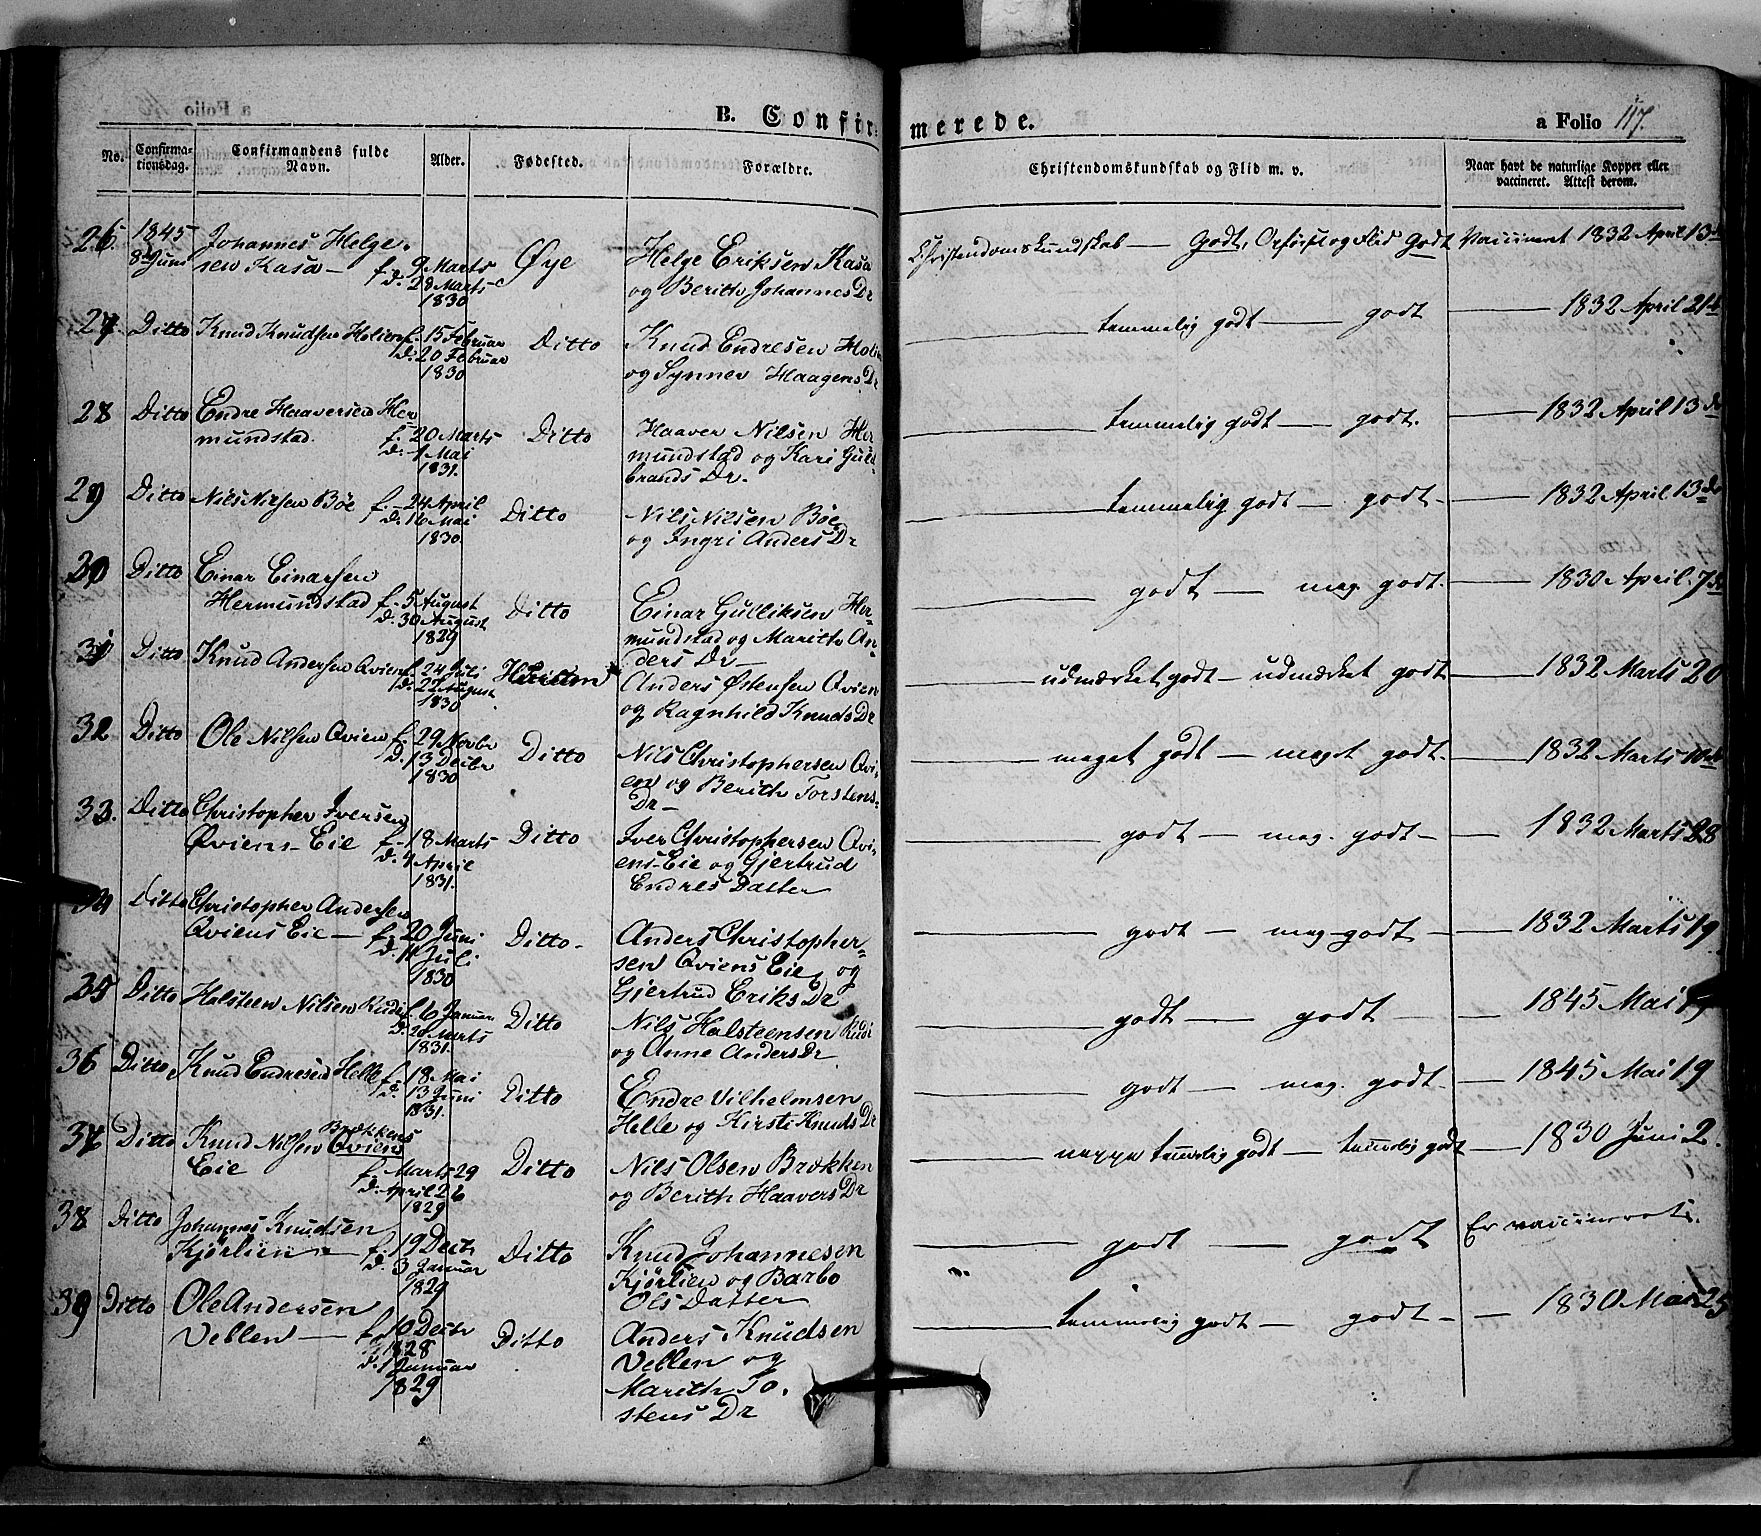 B. Confir-
merede.
a Folio 117.
No.
Confirma-
tionsdag.
Confirmandens fulde
Navn.
Alder.
Fødested.
Forældre.
Christendomskundskab og Flid m. v.
Naar havt de naturlige Kopper eller
vaccineret. Attest derom.
26. 1845 Johannes Helge-
8 Juni sen Kasa — f. 9 Marts Øye Helge Eriksen Kasa
d. 28 Marts og Berith Johannes Dr
1830
Christendomskundskab — Godt, og Flid Godt Vaccineret 1832 April 13de
27. Ditto Knud Knudsen Holien f. 15 Februar Ditto Knud Endresen Holien
d. 20 Februar og Synnev Haagens Dr
1830
temmelig godt — godt — 1832 April 21de
28 Ditto Endre Haaversen Her
mundstad. f. 20 Marts Ditto Haaver Nilsen Her
d. 1 Mai mundstad og Kari Guld
1831. brands Dr.
temmelig godt — godt. — 1832 April 13de
29 Ditto Nils Nilsen Bøe f. 24 April Ditto Nils Nilsen Bøe
d. 16 Mai og Ingri Anders Dr
1830
temmelig godt — godt — 1832 April 13de
30 Ditto Einar Einarsen
Hermundstad f. 5 August Ditto Einar Gulliksen Her-
d. 30 August mundstad og Marith An-
1829 ders Dr —
godt — meg. godt. — 1830 April 7de
31 Ditto Knud Andersen Qvien f. 24 Juli Anders Østensen Qvien
d. 22 August og Ragnhild Knuds Dr
1830
udmærket godt — udmærket godt — 1832 Marts 20
32 Ditto Ole Nilsen Qvien f. 29 Novbr Ditto Nils Christophersen Qvi-
d. 13 Decbr en og Berith Torstens-
1830 Dr —
meget godt — meget godt. — 1832 Marts
33. Ditto Christopher Iversen
Qviens-Eie f. 18 Marts Ditto Iver Christophersen Qvi-
d. 4 April ens-Eie og Gjertrud
1831. Endres Datter
godt — meg. godt — 1832 Marts 28
34 Ditto Christopher Andersen
Qviens Eie — f. 20 Juni Ditto. Anders Christopher-
d. 11 Juli sen Qviens Eie og
1830 Gjertrud Eriks Dr
godt — meg. godt — 1832 Marts 19
35 Ditto Halsteen Nilsen Rudi f. 6 Januar Ditto Nils Halsteensen Rudi
d. 20 Marts og Anne Anders Dr
1831.
godt — godt — 1845 Mai 19
36 Ditto Knud Endresen Helle f. 18 Mai Ditto Endre Vilhelmsen
d. 13 Juni Helle og Kirsti Knuds Dr
1831.
godt — meg. godt — 1845 Mai 19
37 Ditto Knud Nilsen Brækkens Qviens
Eie f. Marts 29 Ditto Nils Olsen Brækken
d. April 26 og Berith Haavers Dr
1829
neppe temelig godt — temelig godt — 1830 Juni 2.
38 Ditto Johannes Knudsen
Kjørlien — f. 19 Decbr Ditto Knud Johannesen
d. 3 Januar Kjørlien og Barbo
1829 Ols Datter
godt — godt Er vaccineret.
39 Ditto Ole Andersen
Vellen — f. 10 Decbr Ditto Anders Knudsen
1828 Vellen og
d. 1 Januar Marith To-
1829 stens Dr
temmelig godt — godt — 1830 Mai 25